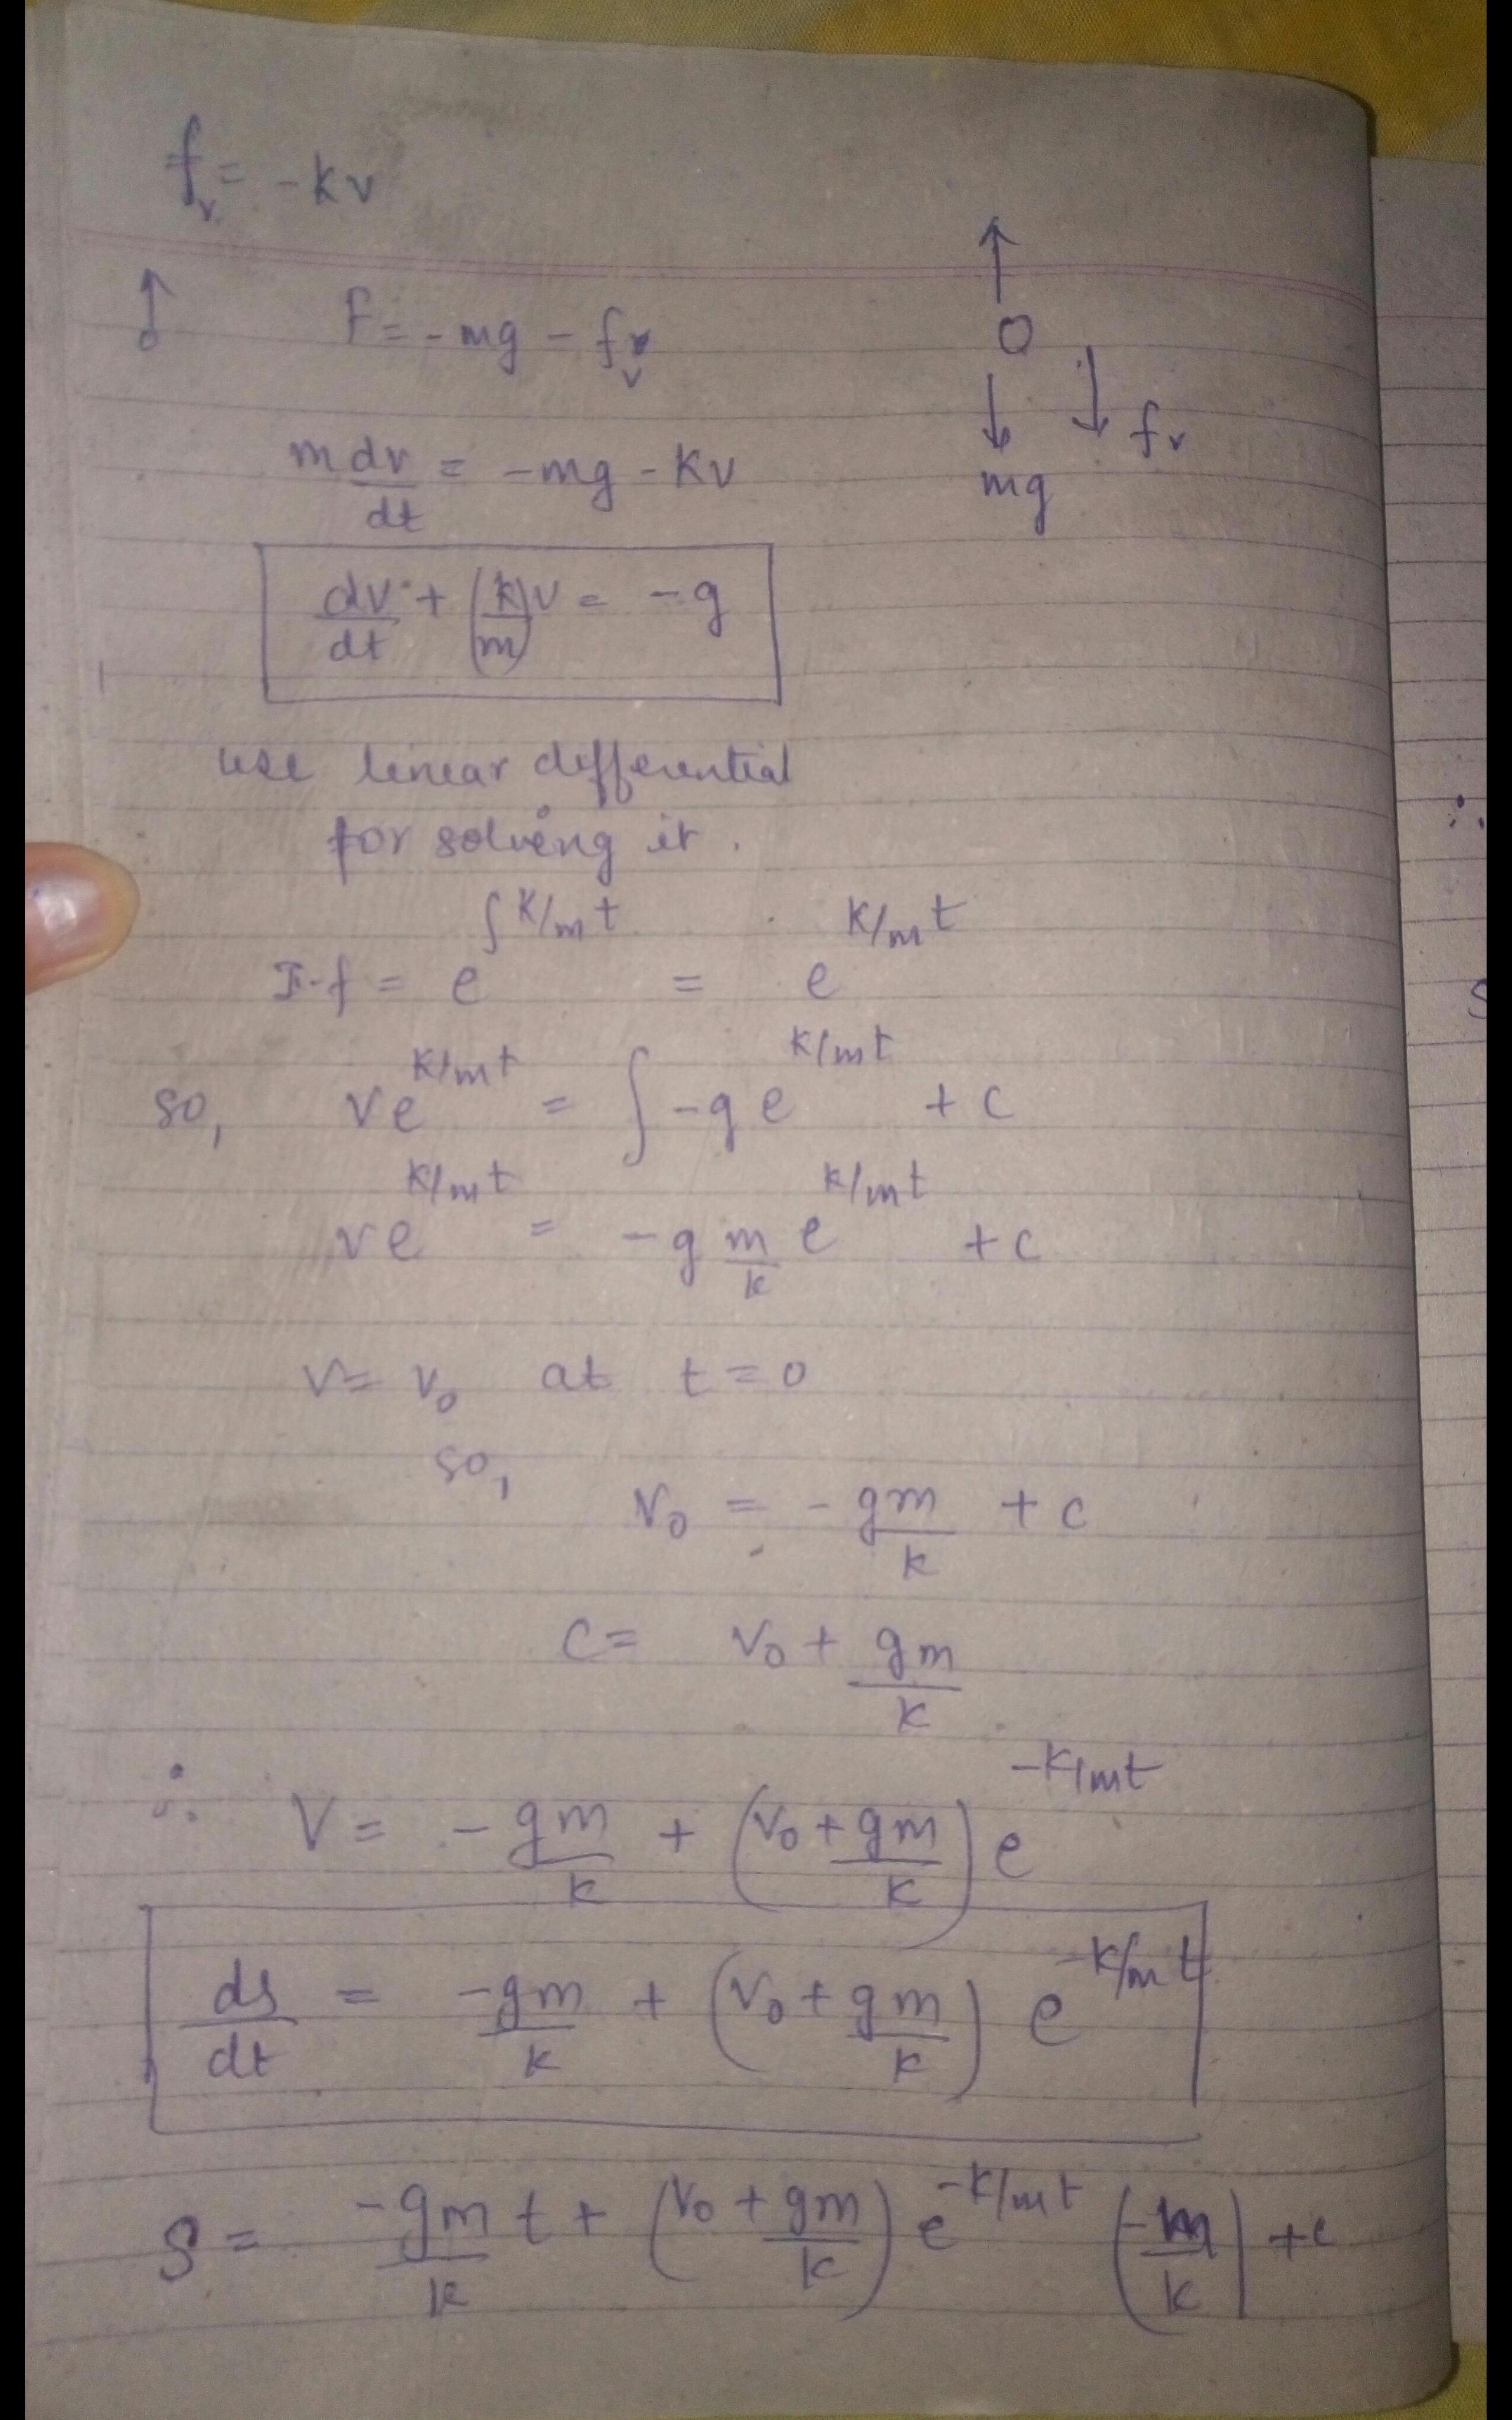 f_v = -kv
F = -mg - f_v
mg
f_v
m dv/dt = -mg - kv
dv/dt + (k/m)v = -g
use linear differential
for solving it.
I.f = e^{∫k/m t} = e^{k/m t}
so, ve^{k/m t} = ∫ -g e^{k/m t} + c
ve^{k/m t} = -g m/k e^{k/m t} + c
v = v₀ at t = 0
so, v₀ = -gm/k + c
c = v₀ + gm/k
∴ V = -gm/k + (v₀ + gm/k) e^{-k/m t}
ds/dt = -gm/k + (v₀ + gm/k) e^{-k/m t}
S = -gm/k t + (v₀ + gm/k) e^{-k/m t} (-m/k) + c